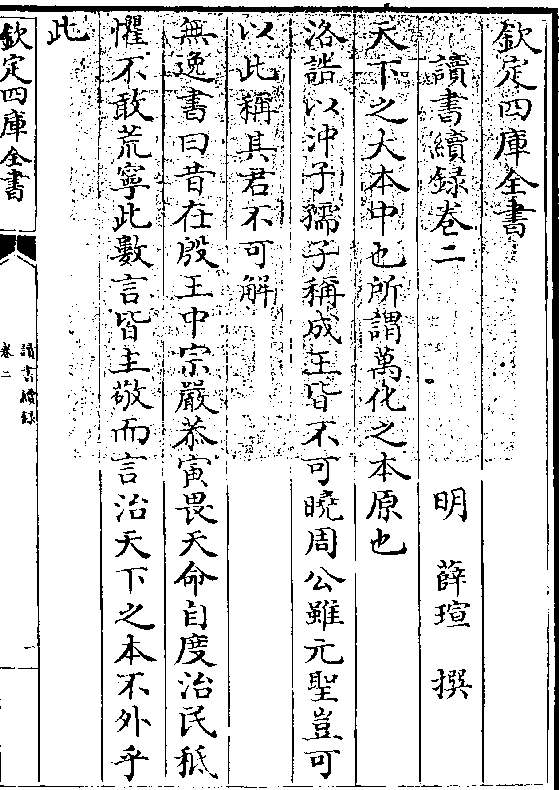 欽定四庫全書
讀書續録卷二
明 薛瑄 撰
天下之大本中也所謂萬化之本原也
洛誥以沖子孺子稱成王皆不可曉周公雖元聖豈可
以此稱其君不可解
無逸書曰昔在殷王中宗嚴恭寅畏天命自度治民祗
懼不敢荒寧此數言皆主敬而言治天下之本不外乎
此
欽定四庫全書
讀書續録
卷二